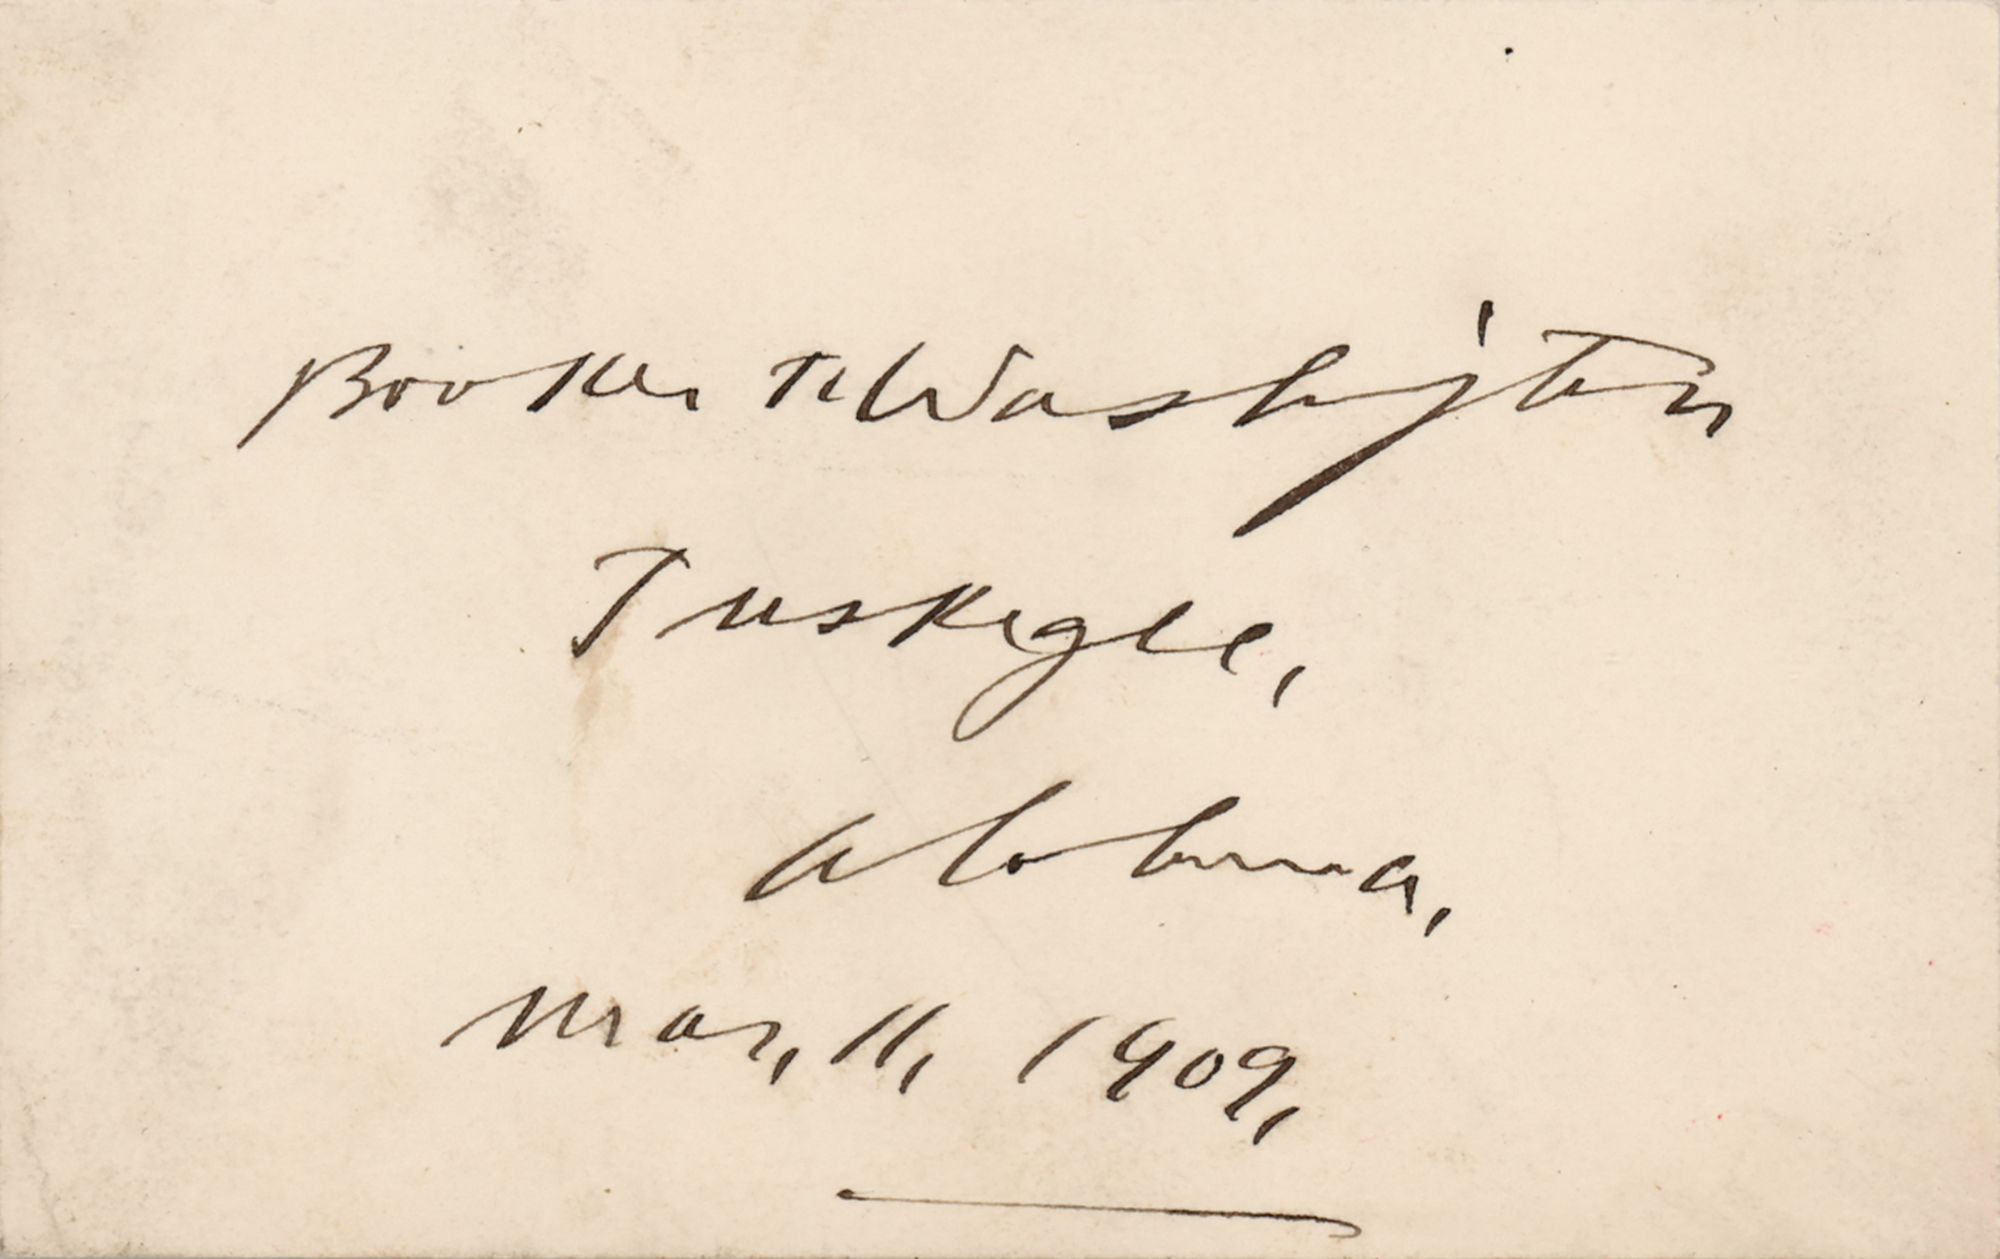 Booker T. Washington
Tuskegee,
Alabama,
Mar, 11, 1909,